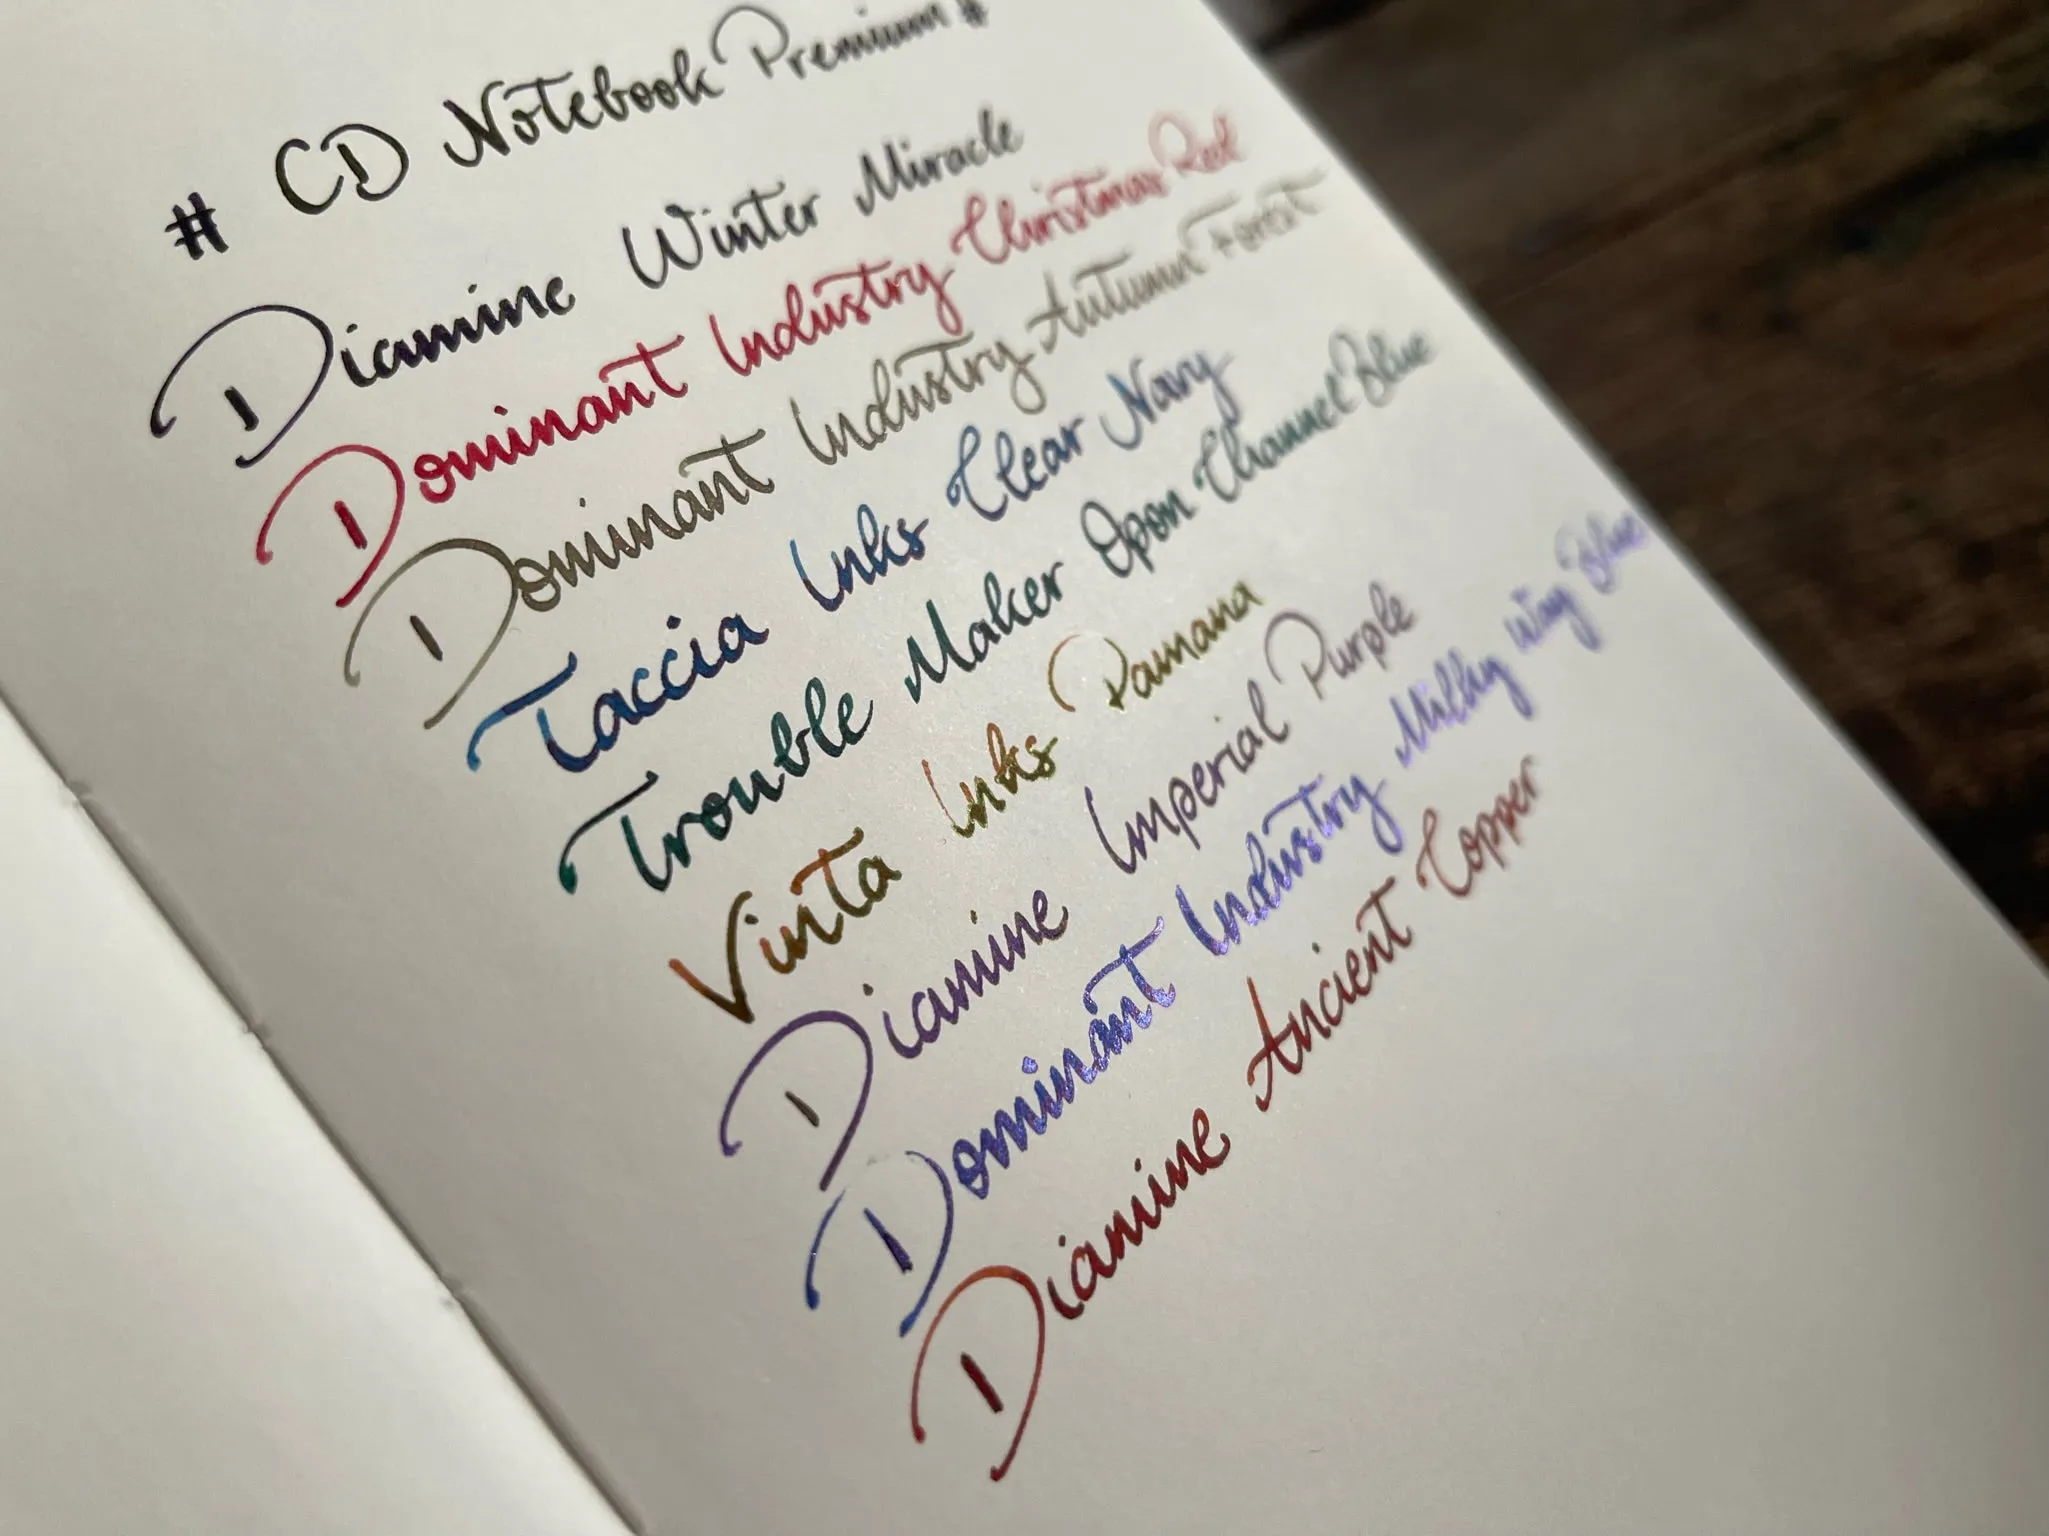 # CD Notebook Premium #
Diamine Winter Miracle
Dominant Industry Christmas Red
Dominant Industry Autumn Forest
Taccia Inks Clear Navy
Trouble Maker Opon Channel Blue
Vinta Inks Pamana
Diamine Imperial Purple
Dominant Industry Milky Way Blue
Diamine Ancient Copper